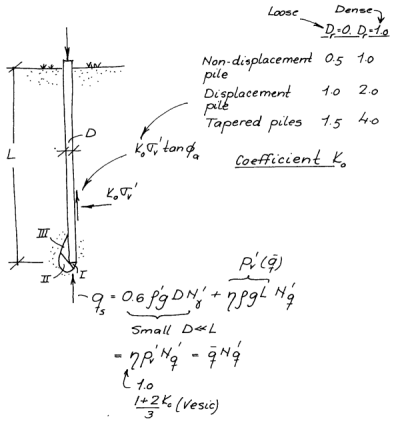 Loose Dense
D_r=0. D_r=1.0
Non-displacement pile 0.5 1.0
Displacement pile 1.0 2.0
Tapered piles 1.5 4.0
Coefficient K_o
L
D
K_o σ_v' tan ϕ_a
K_o σ_v'
III
II
I
p_v' (q̄)
q_s = 0.6 ρ'g D N_γ' + η ρ g L N_q'
Small D≪L
= η p_v' N_q' = q̄ N_q'
1.0
(1+2K_o)/3 (Vesic)